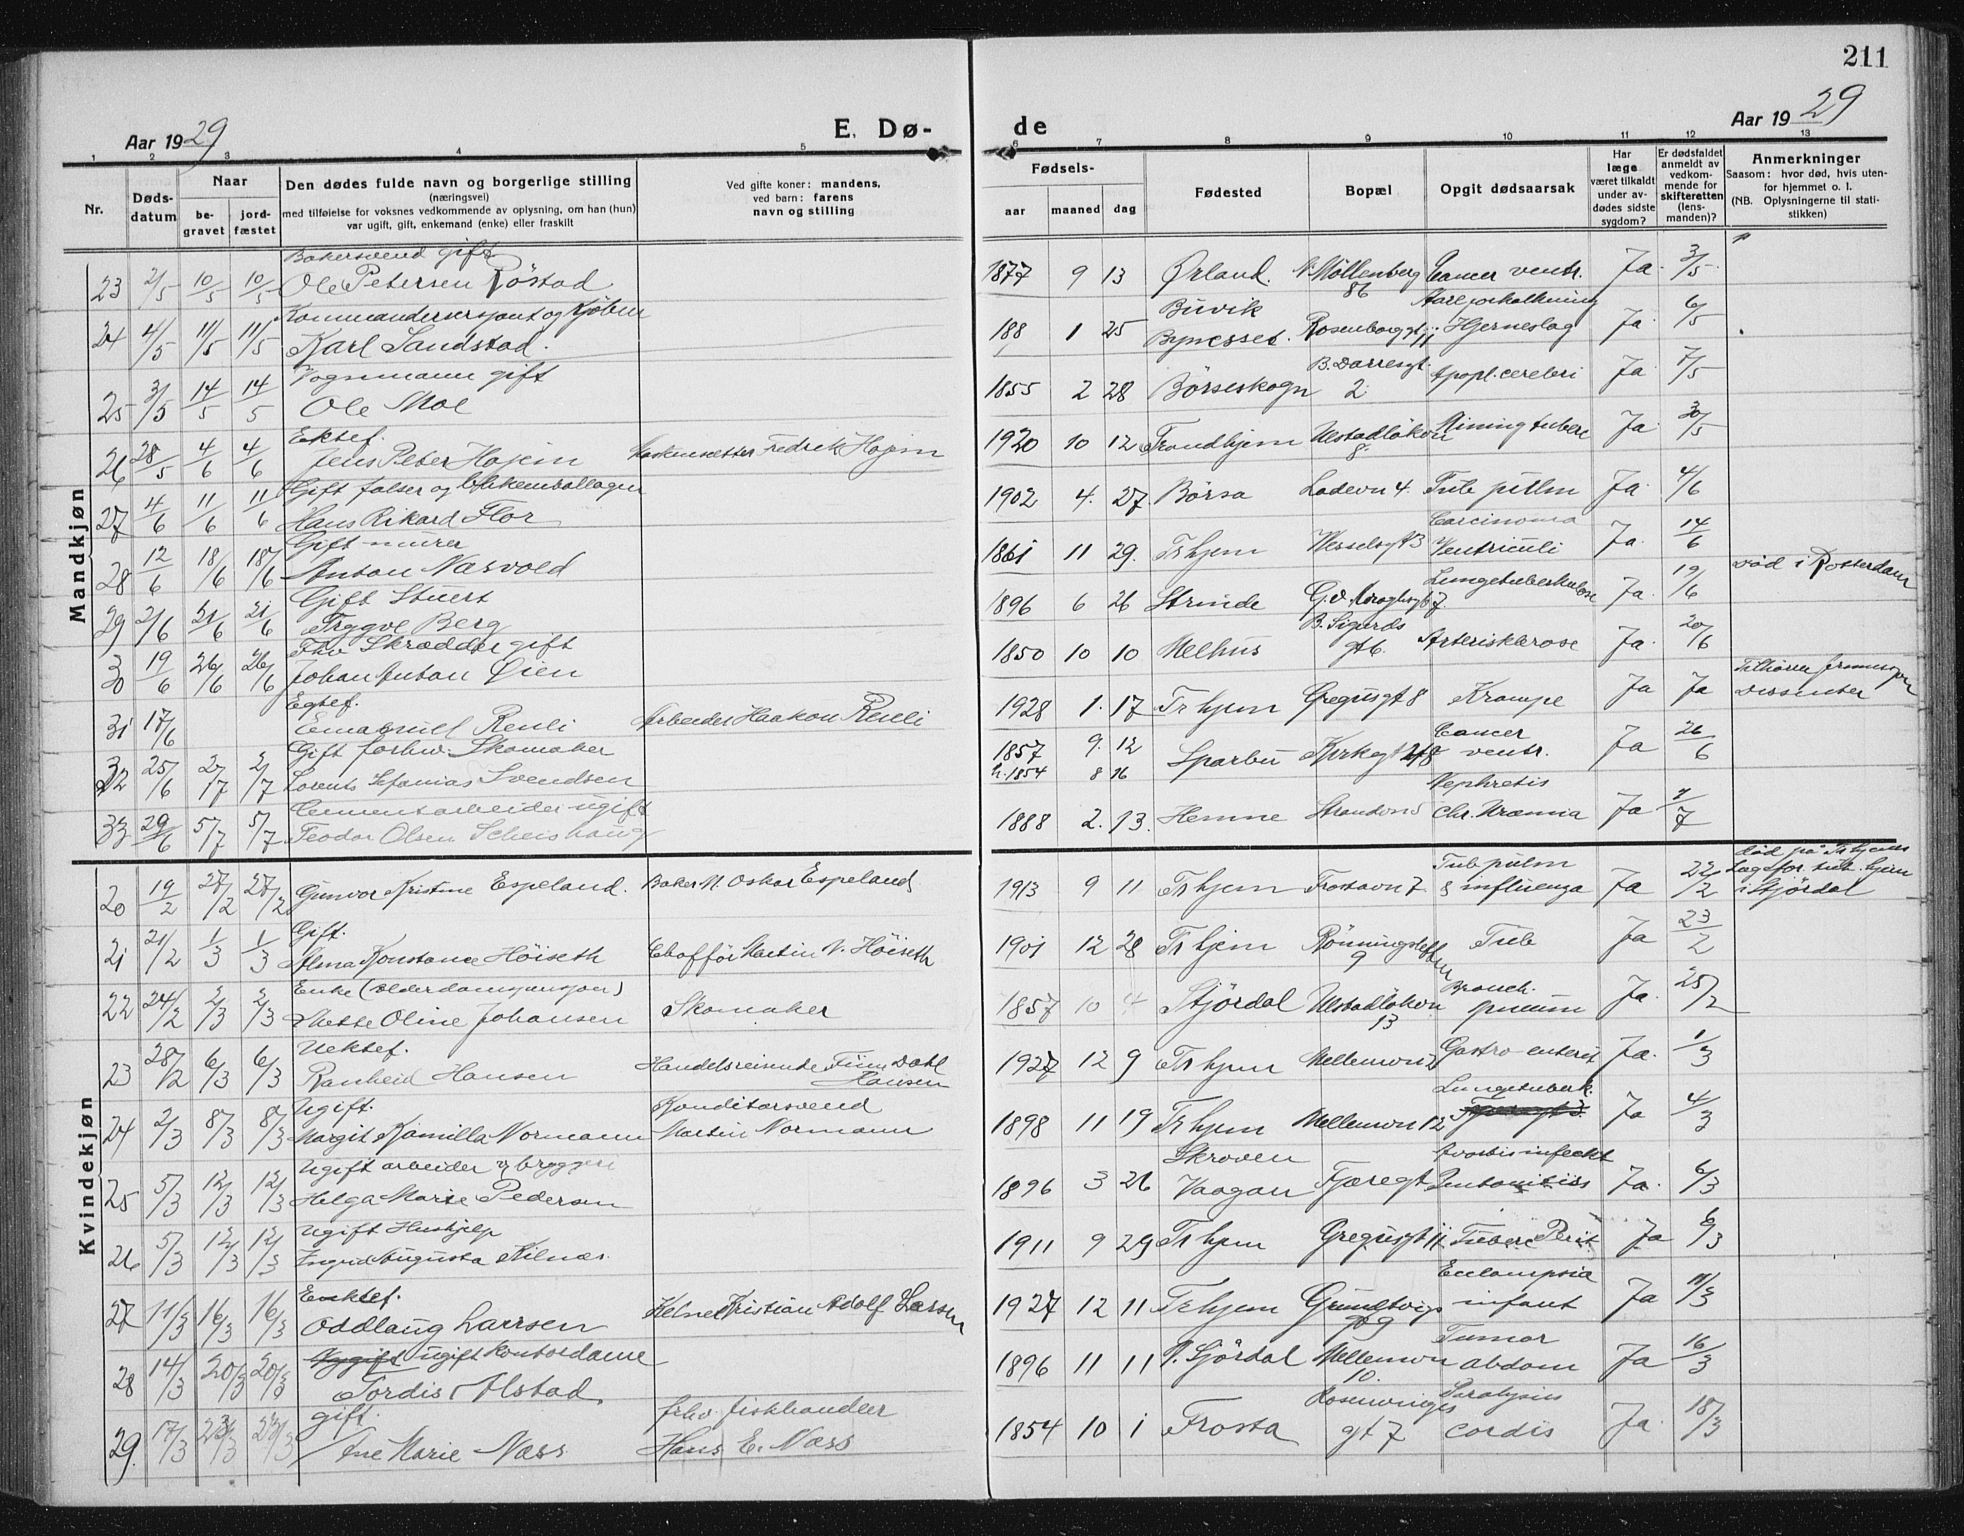 211
Aar 1929
E. Dø-
de
Aar 1929
1 2 3 4 5 6 7 8 9 10 11 12 13
Nr.
Døds-
datum
Naar
be-
gravet
jord-
fæstet
Den dødes fulde navn og borgerlige stilling
(næringsvei)
med tilføielse for voksnes vedkommende av oplysning, om han (hun)
var ugift, gift, enkemand (enke) eller fraskilt
Ved gifte koner: mandens,
ved barn: farens
navn og stilling
Fødsels-
aar maaned dag
Fødested
Bopæl
Opgit dødsaarsak
Har
læge
været tilkaldt
under av-
dødes sidste
sygdom?
Er dødsfaldet
anmeldt av
vedkom-
mende for
skifteretten
(lens-
manden)?
Anmerkninger
Saasom: hvor død, hvis uten-
for hjemmet o. l.
(NB. Oplysningerne til stati-
stikken)
Mandkjøn
Bakersvend gift
23 2/5 10/5 10/5 Ole Petersen Röstad 1877 9 13 Ørland. N. Möllenberg 86 Cancer ventr. Ja. 3/5
24 4/5 11/5 11/5 Karl Sandstad. 188 1 25 Buvik Bynesset. Rosenborggt 11 Aareforkalkning Hjerneslag Ja. 6/5
Vognmann gift
25 3/5 14/5 14/5 Ole Moe 1855 2 28 Börseskogn 2. Apopl. cerebri Ja. 7/5
Ektef.
26 28/5 4/6 4/6 Jens Peter Hojem Fredrik Hojem 1920 10 12 Trondhjem 8. Ja. 30/5
Gift
27 4/6 11/6 11/6 Hans Rikard Flor 1902 4. 27 Börsa Ladevn 4. Tub pulm Ja. 4/6
Gift murer
28 12/6 18/6 18/6 Anton Næsvold 1861 11 29. Trhjem Wesselsgt 3 Carcinoma Ventriculi Ja. 14/6
Gift Stuert
29 2/6 21/6 21/6 Tryggve Berg 1896 6 26 Strinde Lungetuberkulose Ja. 19/6 Död i Rotterdam
Fhv Skrædder gift
30 19/6 26/6 26/6 Johan Anton Öien 1850 10 10 Melhus B. Sigurds gt 6. Arterisklerose Ja. 20/6
Egtef.
31 17/6 Emanuel Reuli Arbeider Haakon Reuli 1928 1. 17 Trhjem Gregusgt 8 Krampe Ja Ja Dissenter
Gift forhv. Skomaker
32 25/6 2/7 2/7 Lorents Sefanias Svendsen 1857 9. 12 h. 1854 8 16 Sparbu Kirkegt 48 Cancer ventr. Ja 26/6
Cementarbeider ugift
33 29/6 5/7 5/7 Teodor Olsen 1888 2. 13. Hemne Nephretis chr. Uræmia Ja 2/7
Kvindekjøn
20 19/2 27/2 27/2 Gunvor Kristine Espeland. Baker M. Oskar Espeland 1913 9 11 Trhjem Frostavn 7 Tub pulm & influenza Ja 22/2 i Stjördal
Gift.
21 21/2 1/3 1/3 Alma Konstanse Höiseth Chafför Martin N. Höiseth 1901 12 28 Trhjem 9 Tub Ja 23/2
22 24/2 2/3 2/3 Mette Oline Johansen Skomaker 1857 10 4 Stjördal 13 Bronch. pneum Ja. 25/2
Uektef.
23 28/2 6/3 6/3 Ranheid Hansen Handelsreisende Finn Dahl Hansen 1927 12 9 Trhjem Gastro-enterit Ja. 1/3
Ugift.
24 2/3 8/3 8/3 Margit Kamilla Normann Konditorsvend Martin Normann 1898 11 19 Trhjem Mellemvn 12 Lungetuberk. Ja 4/3
Ugift arbeider v/ bryggeri
25 5/3 12/3 12/3 Helga Marie Pedersen 1896 3 26 Skroven Vaagan Fjæregt Ja. 6/3
Ugift Hushjelp
26 5/3 12/3 12/3 Ingrid Augusta 1911 9 29 Trhjem Gregusgt 11 Ja 6/3
Ektef.
27 11/3 16/3 16/3 Oddlaug Larssen Kelner Kristian Adolf Larsen 1927 12 11 Trhjem Grundtvigs gt 9 Eclampsia infant Ja 11/3
ugift kontordame
28 14/3 20/3 20/3 Tordis Alstad 1896 11 11 Mellemvn 10. Tumor abdom Ja 16/3
gift.
29. 17/3 23/3 23/3 Ane Marie Næss frhv. fiskhandler Hans E. Næss 1854 10 1 Frosta Rosenvinges gt 7 Paralysis cordis Ja. 18/3